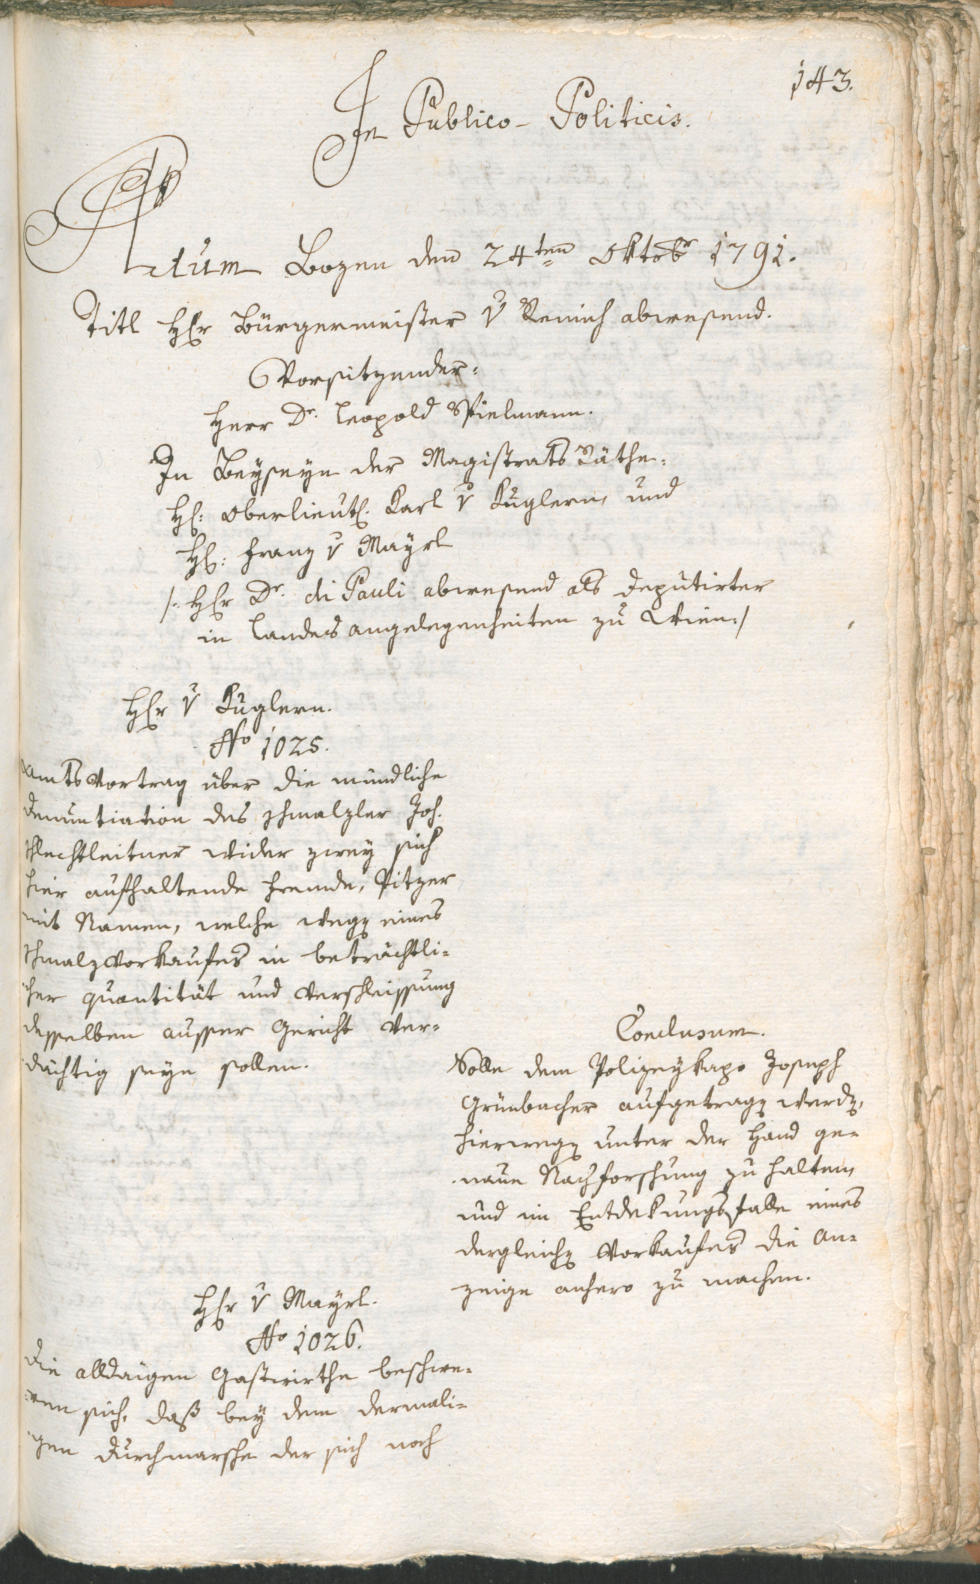 143.
In Publico-Politicis.
Actum Bozen den 24ten Oktobr 1791.
Titl Hr Bürgermeister v Remich abwesend.
Vorsitzender:
Herr Dr. Leopold Spielmann.
In Beyseyn der Magistrats Räthe:
H: Oberlieut. Karl v Kuglern, und
H: Franz v Mayrl
/: Hr Dr. di Pauli abwesend als Deputirter
in Landes angelegenheiten zu Wien :/
Hr v Kuglern.
No 1025.
Amts Vortrag über die mündliche
Denuntiation des Schmalzler Joh.
Schlechtleitner wider zwey sich
hier aufhaltende Fremde, Pitzer
mit Namen, welche wegen eines
Schmalzvorkaufes in beträchtli-
cher quantität und Verschleissung
desselben ausser Gericht ver-
dächtig seyn sollen.
Conclusum.
Solle dem Polizeykapo Joseph
Grünbacher aufgetragen werden,
hierwegen unter der Hand ge-
naue Nachforschung zu halten,
und im Entdekungsfalle eines
dergleichen Vorkaufes die An-
zeige anhero zu machen.
Hr v Mayrl.
No 1026.
Die alldaigen Gastwirthe beschwe-
ren sich, daß bey dem dermali-
gen Durchmarsche der sich noch